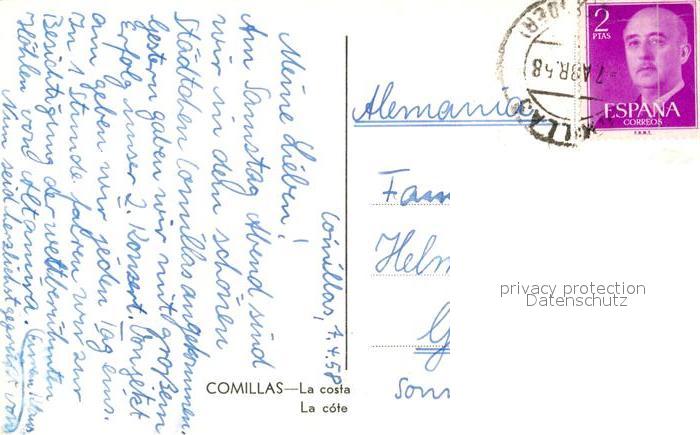 Comillas, 7.4.58
Meine Lieben!
Am Samstag Abend sind
wir in dem schönen
Städtchen Comillas angekommen.
Gestern gaben wir mit großem
Erfolg unser 2. Konzert. Von jetzt
an geben wir jeden Tag eins.
In 1 Stunde fahren wir zur
Besichtigung der weltberühmten
Höhlen von Altamira.
Nun seid herzlichst gegrüßt von
COMILLAS—La costa
La côte
Alemania
Fam
Helm
G
Sonn
privacy protection
Datenschutz
7 ABR. 58
2
PTAS
ESPAÑA
CORREOS
F.N.M.T.